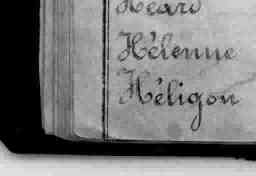 Héard
Hélenne
Héligon